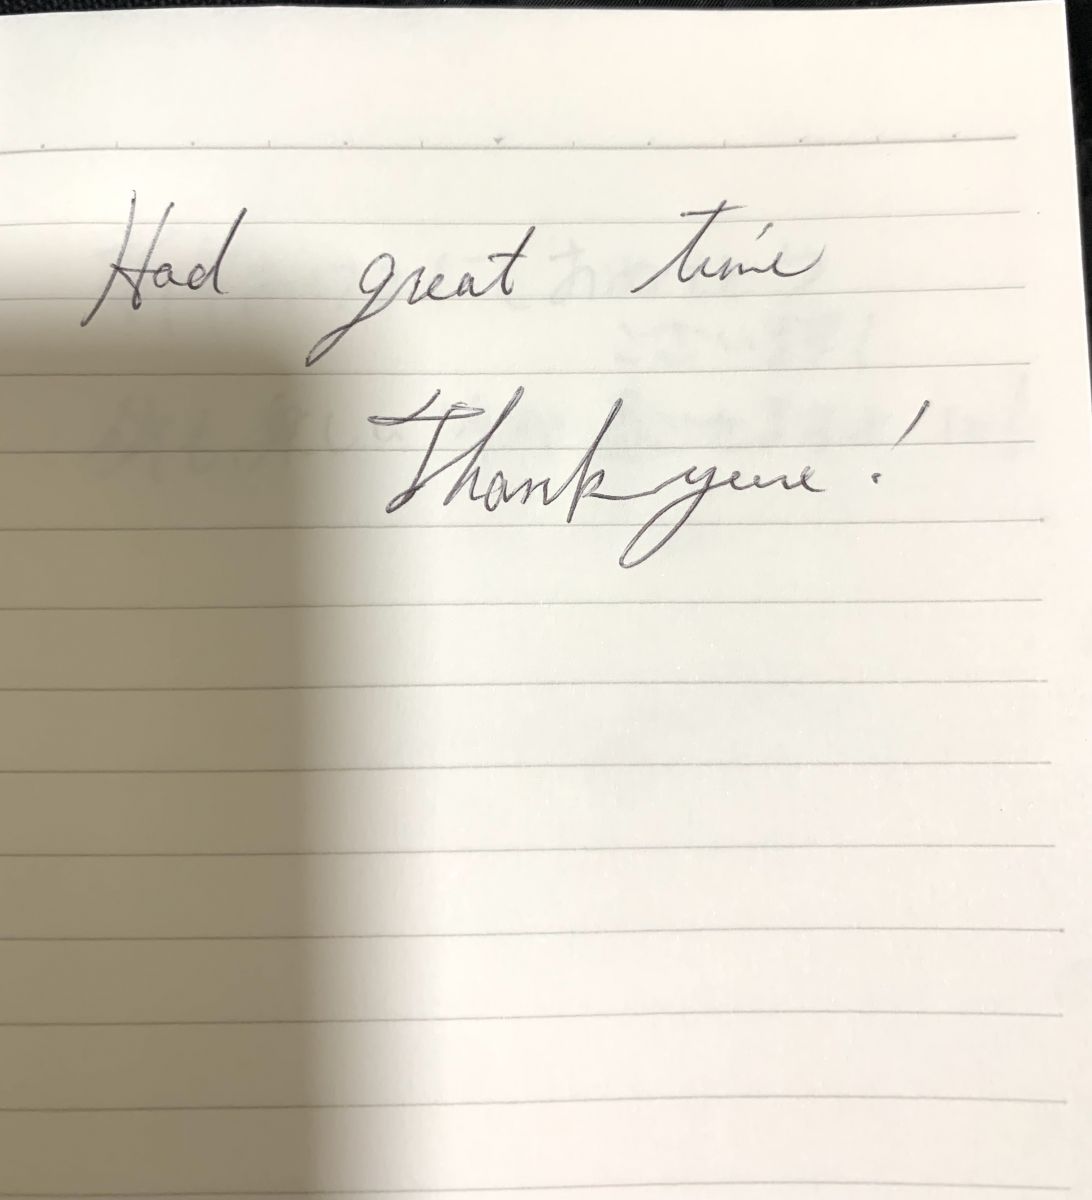 Had great time
Thank you!